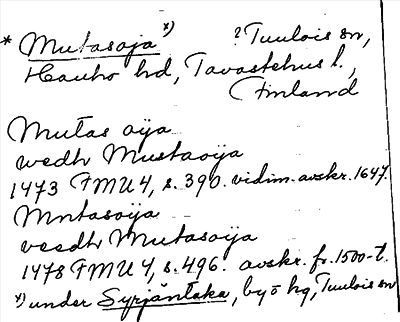 * Mutasoja *) ? Tuulois sn,
Hauho hd, Tavastehus l.,
Finland
Mutas oija
wedh Mustaoija
1473 FMU 4, s. 390. vidim. avskr. 1647.
Mntasoija
veedh Mutasoija
1478 FMU 4, s. 496. avskr. fr. 1500-t.
*) under Syrjäntaka, by o hg, Tuulois sn